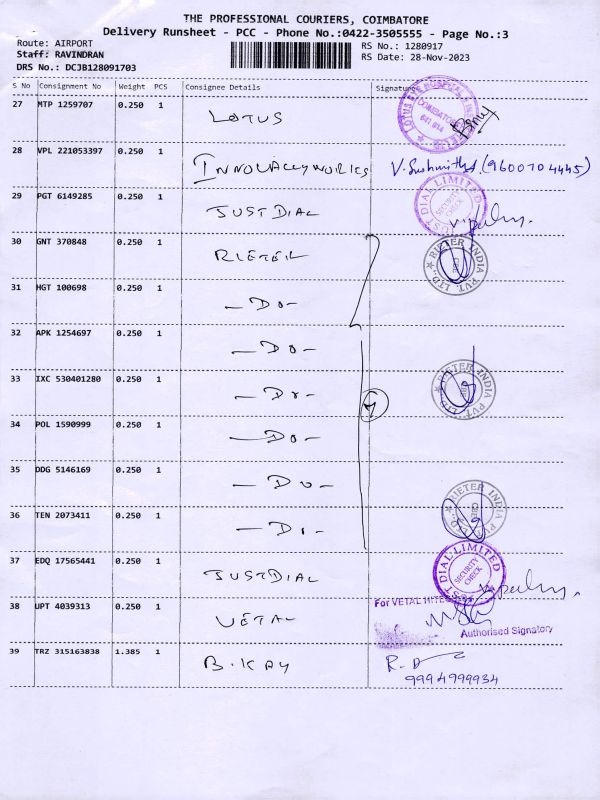 THE PROFESSIONAL COURIERS, COIMBATORE
Delivery Runsheet - PCC - Phone No.:0422-3505555 - Page No.:3
Route: AIRPORT RS No.: 1280917
Staff: RAVINDRAN RS Date: 28-Nov-2023
DRS No.: DCJB128091703
S No Consignment No Weight PCS Consignee Details Signature
27 MTP 1259707 0.250 1 LOTUS
COIMBATORE
641 014
28 VPL 221053397 0.250 1 V. Sushmitha (9600704445)
29 PGT 6149285 0.250 1 JUSTDIAL
JUST DIAL LIMITED SECURITY CHECK
30 GNT 370848 0.250 1 RIETER
RIETER INDIA PVT. LTD.
31 HGT 100698 0.250 1 -DO-
32 APK 1254697 0.250 1 -DO-
33 IXC 530401280 0.250 1 -DO-
RIETER INDIA PVT. LTD.
34 POL 1590999 0.250 1 -DO-
35 DDG 5146169 0.250 1 -DO-
36 TEN 2073411 0.250 1 -DO-
RIETER INDIA PVT. LTD.
37 EDQ 17565441 0.250 1 JUSTDIAL
JUST DIAL LIMITED SECURITY CHECK
38 UPT 4039313 0.250 1 VETAL
For VETAL
Authorised Signatory
39 TRZ 315163838 1.385 1 B.KAY R.D
9994999934